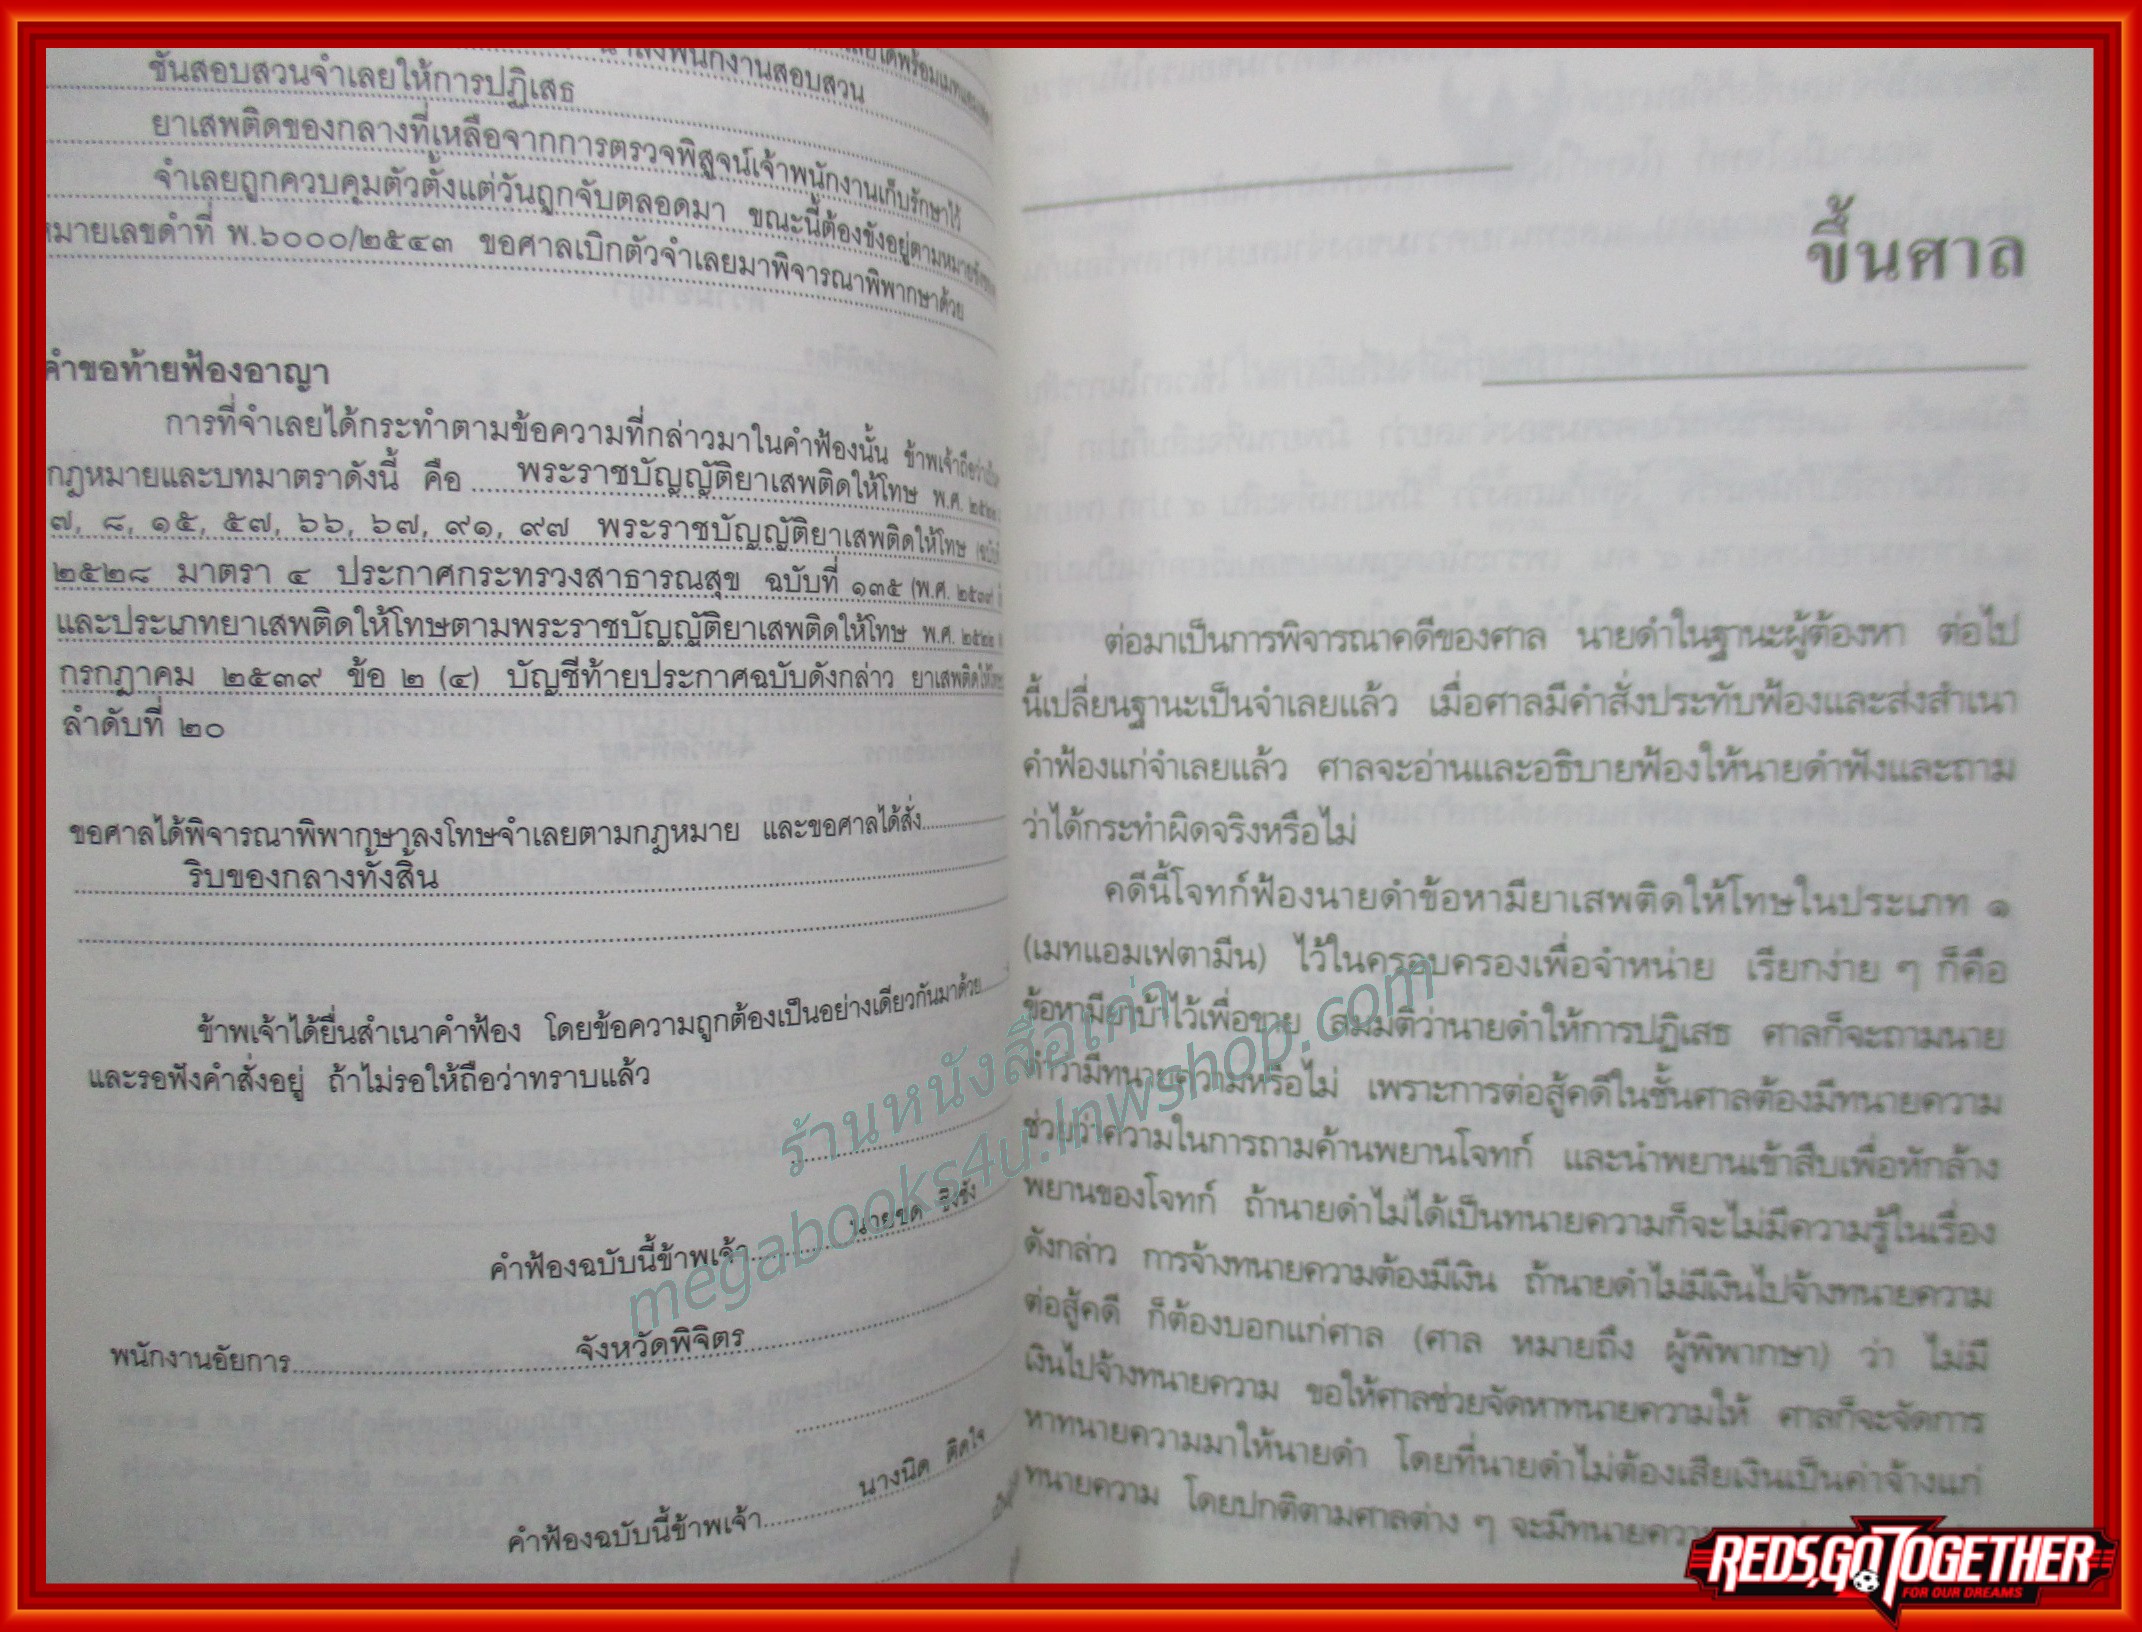 นำส่งพนักงานสอบสวน
ชั้นสอบสวนจำเลยให้การปฏิเสธ
ยาเสพติดของกลางที่เหลือจากการตรวจพิสูจน์เจ้าพนักงานเก็บรักษาไว้
จำเลยถูกควบคุมตัวตั้งแต่วันถูกจับตลอดมา ขณะนี้ต้องขังอยู่ตามหมายขัง
หมายเลขดำที่ พ.๖๐๐๐/๒๕๔๓ ขอศาลเบิกตัวจำเลยมาพิจารณาพิพากษาด้วย
คำขอท้ายฟ้องอาญา
การที่จำเลยได้กระทำตามข้อความที่กล่าวมาในคำฟ้องนั้น ข้าพเจ้าถือว่า
กฎหมายและบทมาตราดังนี้ คือ พระราชบัญญัติยาเสพติดให้โทษ พ.ศ. ๒๕๒๒
๗, ๘, ๑๕, ๕๗, ๖๖, ๖๗, ๙๑, ๙๗ พระราชบัญญัติยาเสพติดให้โทษ
๒๕๒๘ มาตรา ๔ ประกาศกระทรวงสาธารณสุข ฉบับที่ ๑๓๕ (พ.ศ. ๒๕๓๙
และประเภทยาเสพติดให้โทษตามพระราชบัญญัติยาเสพติดให้โทษ พ.ศ. ๒๕๒๒
กรกฎาคม ๒๕๓๙ ข้อ ๒ (๔) บัญชีท้ายประกาศฉบับดังกล่าว ยาเสพติดให้โทษ
ลำดับที่ ๒๐
ขอศาลได้พิจารณาพิพากษาลงโทษจำเลยตามกฎหมาย และขอศาลได้สั่ง
ริบของกลางทั้งสิ้น
ข้าพเจ้าได้ยื่นสำเนาคำฟ้อง โดยข้อความถูกต้องเป็นอย่างเดียวกันมาด้วย
และรอฟังคำสั่งอยู่ ถ้าไม่รอให้ถือว่าทราบแล้ว
คำฟ้องฉบับนี้ข้าพเจ้า นายขด ขึงขัง
พนักงานอัยการ จังหวัดพิจิตร
คำฟ้องฉบับนี้ข้าพเจ้า นางนิด ติดใจ
ขึ้นศาล
ต่อมาเป็นการพิจารณาคดีของศาล นายดำในฐานะผู้ต้องหา ต่อไป
นี้เปลี่ยนฐานะเป็นจำเลยแล้ว เมื่อศาลมีคำสั่งประทับฟ้องและส่งสำเนา
คำฟ้องแก่จำเลยแล้ว ศาลจะอ่านและอธิบายฟ้องให้นายดำฟังและถาม
ว่าได้กระทำผิดจริงหรือไม่
คดีนี้โจทก์ฟ้องนายดำข้อหามียาเสพติดให้โทษในประเภท ๑
(เมทแอมเฟตามีน) ไว้ในครอบครองเพื่อจำหน่าย เรียกง่าย ๆ ก็คือ
ข้อหามียาบ้าไว้เพื่อขาย สมมติว่านายดำให้การปฏิเสธ ศาลก็จะถามนาย
ดำว่ามีทนายความหรือไม่ เพราะการต่อสู้คดีในชั้นศาลต้องมีทนายความ
ช่วยว่าความในการถามค้านพยานโจทก์ และนำพยานเข้าสืบเพื่อหักล้าง
พยานของโจทก์ ถ้านายดำไม่ได้เป็นทนายความก็จะไม่มีความรู้ในเรื่อง
ดังกล่าว การจ้างทนายความต้องมีเงิน ถ้านายดำไม่มีเงินไปจ้างทนายความ
ต่อสู้คดี ก็ต้องบอกแก่ศาล (ศาล หมายถึง ผู้พิพากษา) ว่า ไม่มี
เงินไปจ้างทนายความ ขอให้ศาลช่วยจัดหาทนายความให้ ศาลก็จะจัดการ
หาทนายความมาให้นายดำ โดยที่นายดำไม่ต้องเสียเงินเป็นค่าจ้างแก่
ทนายความ โดยปกติตามศาลต่าง ๆ จะมีทนายความ
ร้านหนังสือเก่า
megabooks4u.lnwshop.com
REDS,GO TOGETHER
FOR OUR DREAMS